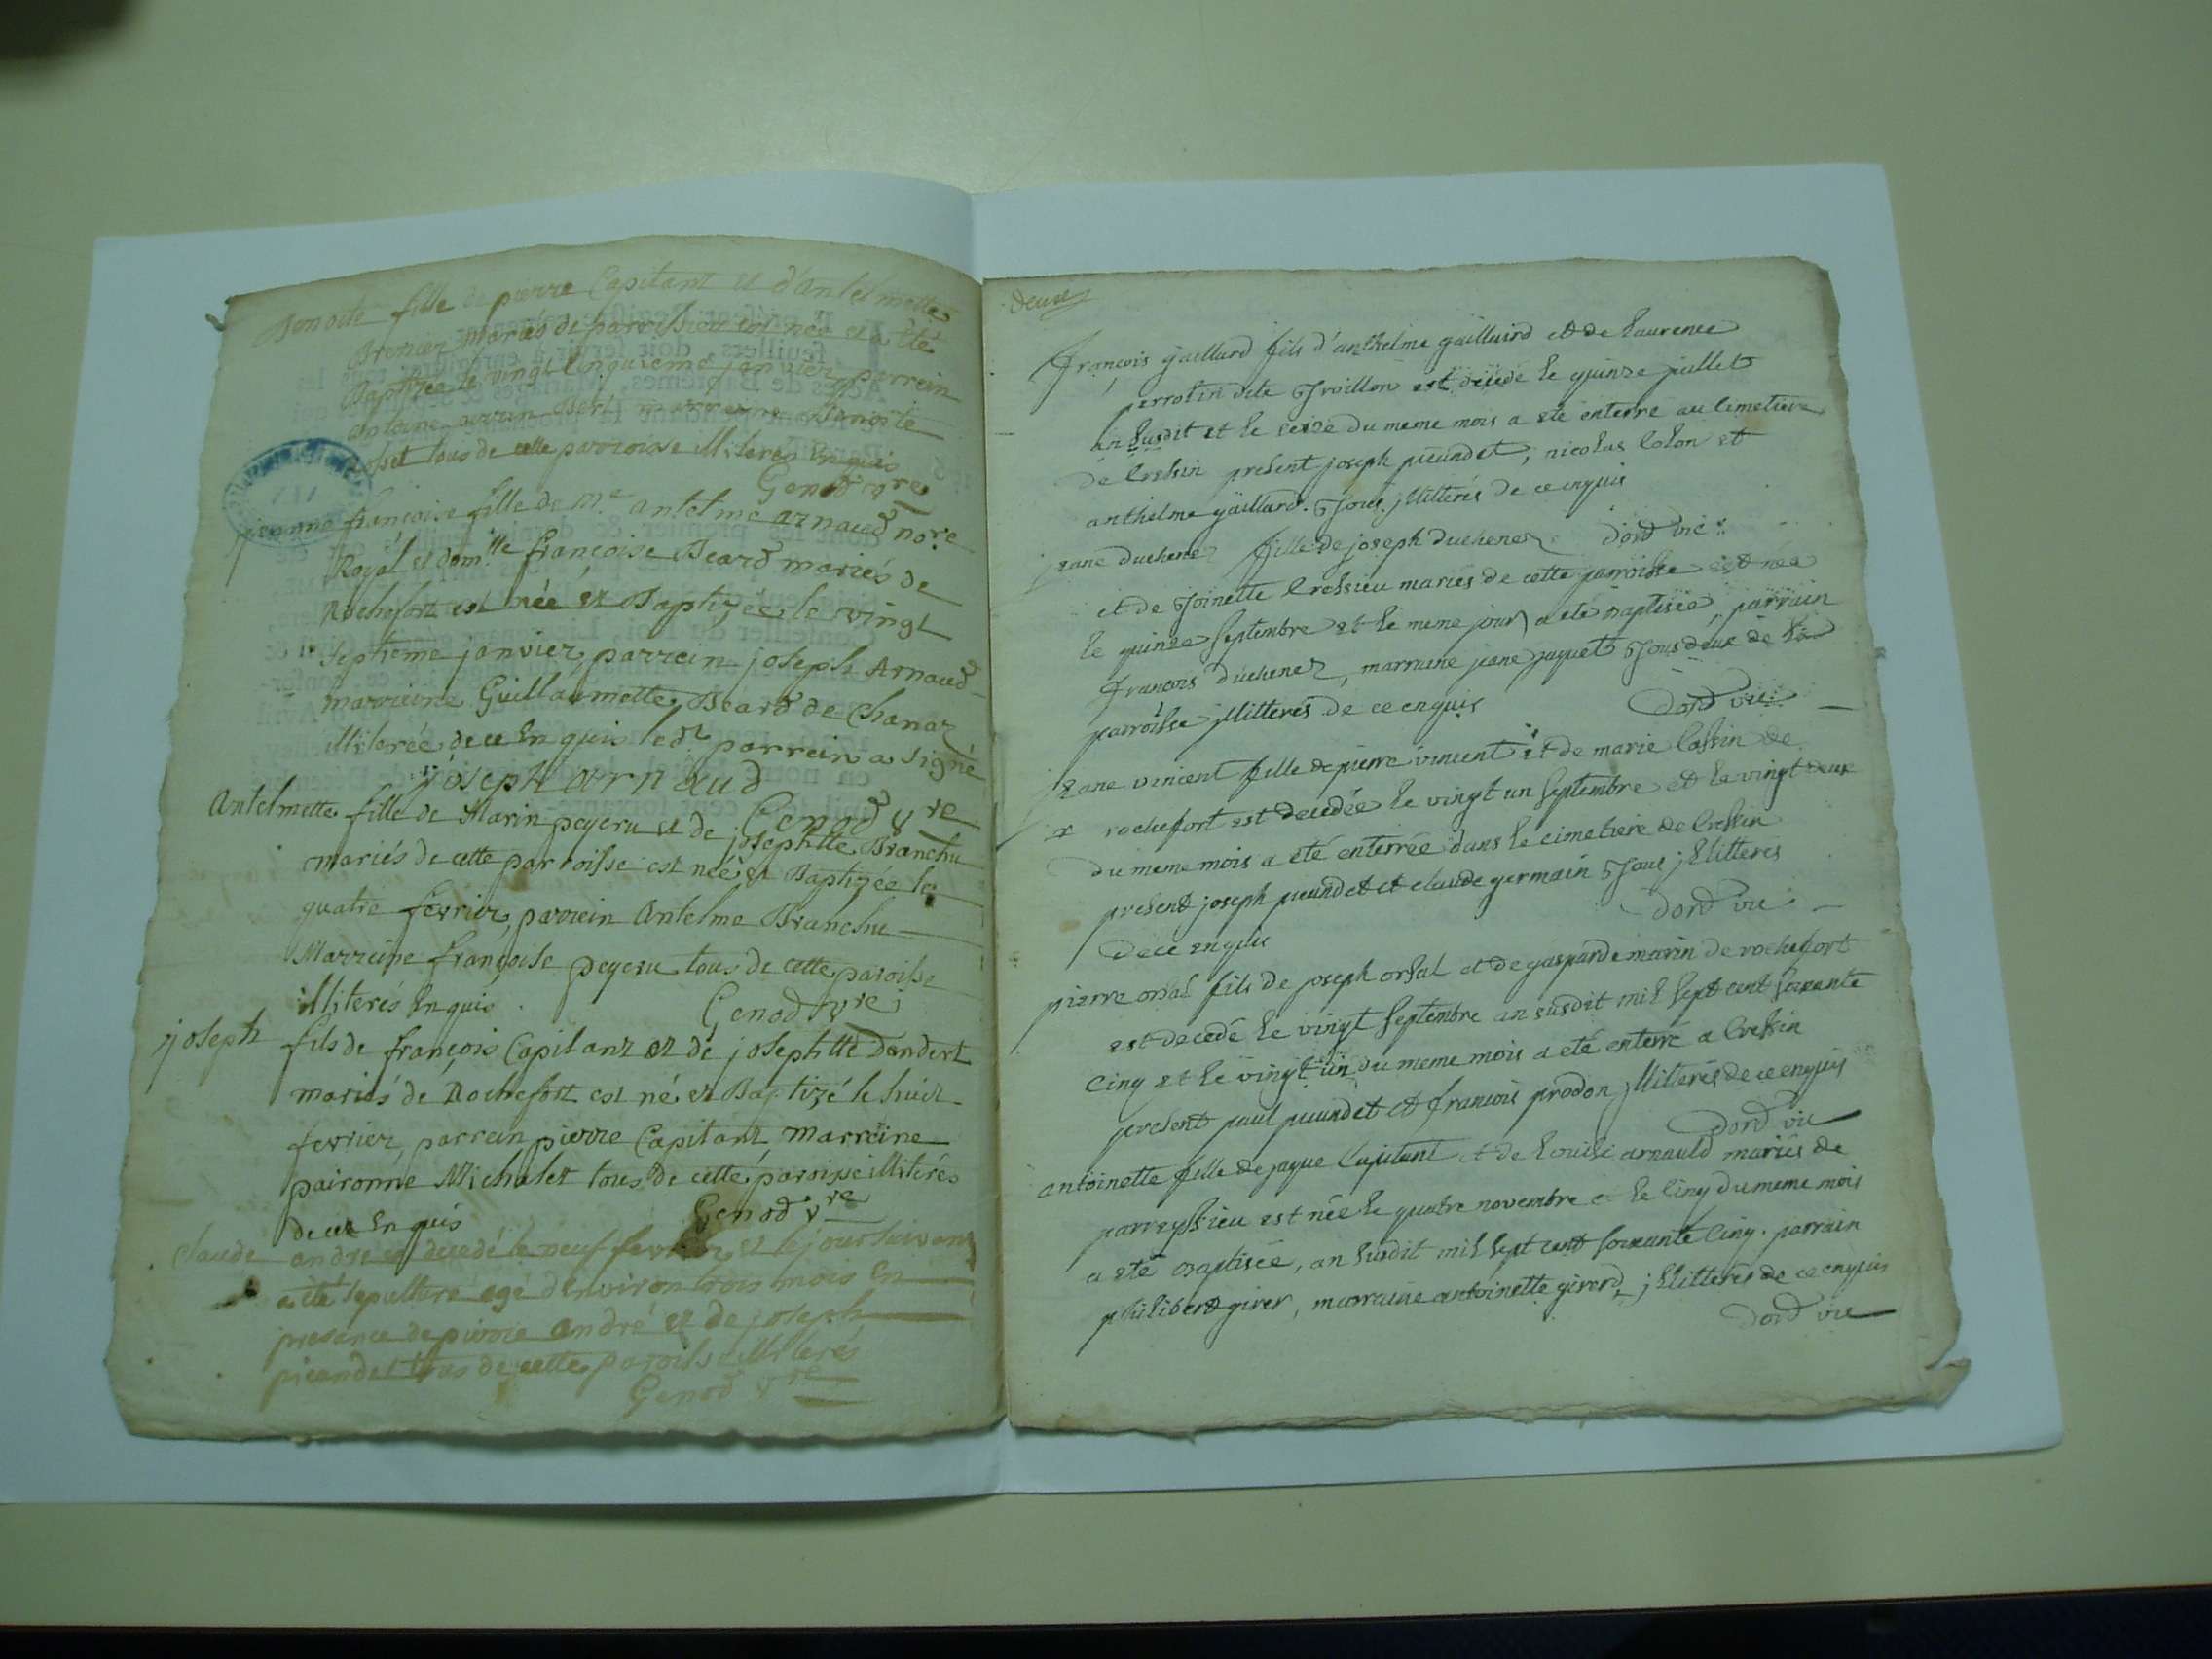 Benoite fille de pierre Capitant et d'antelmette
Brenier Mariés de parrissieu est née et a été
Baptizée le vingt Cinquieme janvier, parrein
antoine marreine Benoite
tous de cette parroisse illiterés Enquis
Genod vre
jeanne françoise fille de Me antelme arnaud nore
Royal et domlle françoise Beard mariés de
Rochefort est née et Baptizée le vingt
septieme janvier, parrein joseph Arnaud
marreine Guillaumette Beard de Chanaz
illiterée de ce Enquis ledt parrein a signé
joseph arnaud
Genod vre
Antelmette fille de Marin peyeru et de josephtte Branchu
mariés de cette parroisse est née et Baptizée le
quatre fevrier, parrein Antelme Branchu
Marreine françoise peyeru tous de cette paroisse
illiterés Enquis .
Genod vre
joseph fils de françois Capitant et de josephtte Dandert
mariés de Rochefort est né et Baptizé le huit
fevrier, parrein pierre Capitant, Marreine
paironne Michalet tous de cette paroisse illiterés
de ce Enquis
Genod vre
Claude andré est decedé le neuf fevrier et le jour suivant
a été sepulturé agé d'environ trois mois En
presence de pierre andré et de joseph
picandet tous de cette paroisse illiterés
Genod vre
deux
françois gaillard fils d'anthelme gaillard et de laurence
perrotin dite Troillon est decedé le quinze juillet
an susdit et le seize du meme mois a eté enterré au cimetiere
de Cressin present joseph picandet, nicolas Colon et
anthelme gaillard. Tous jllitterés de ce enquis
dord vic:
jeane duchene fille de joseph duchene
et de Toinette Cressieu mariés de cette parroisse est née
le quinze septembre et le meme jour a eté baptisée, parrain
françois duchene, marraine jeane jaquet Tous deux de la
parroisse jllitterés de ce enquis
dord vic:
jeane vincent fille de pierre vincent et de marie Cassin de
rochefort est decedée le vingt un septembre et le vingt deux
du meme mois a eté enterrée dans le cimetiere de Cressin
present joseph picandet et claude germain Tous jllitterés
de ce enquis
dord vic
pierre orsal fils de joseph orsal et de gasparde marin de rochefort
est decedé le vingt septembre an susdit mil sept cent soixante
Cinq et le vingt un du meme mois a eté enterré a Cressin
present paul picandet et francois prodon jllitterés de ce enquis
dord vic
antoinette fille de jaque Capitant et de Louise arnauld mariés de
parreyssieu est née le quatre novembre et le Cinq du meme mois
a eté baptisée, an susdit mil sept cent soixante Cinq. parrain
philibert girer, marraine antoinette girerd, jllitterés de ce enquis
dord vic